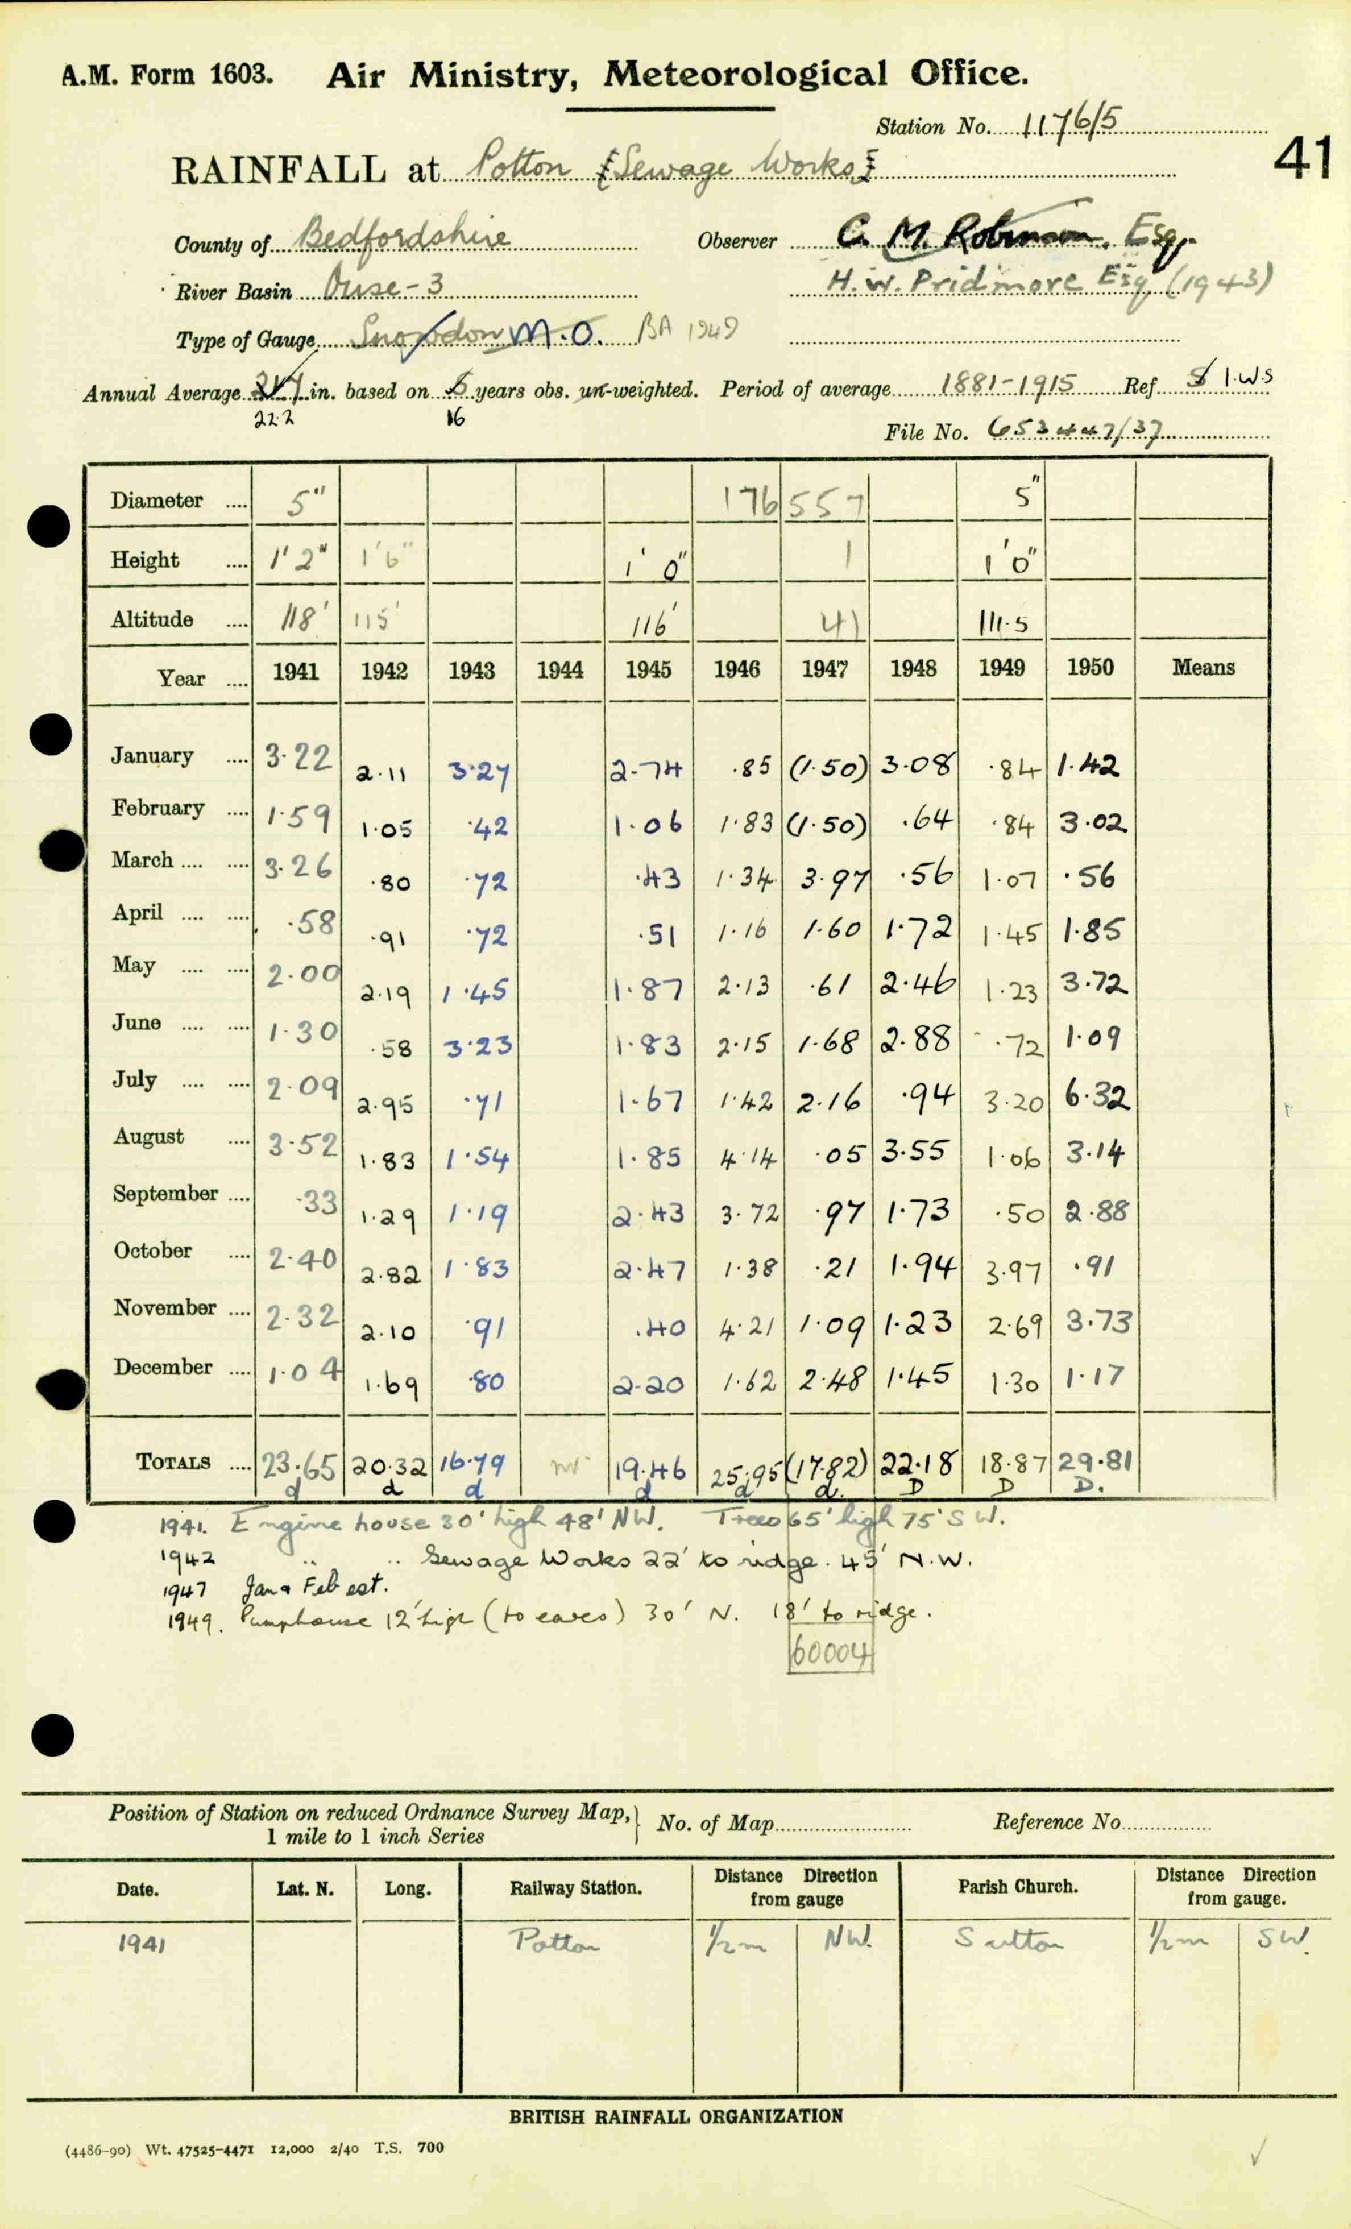 A.M. Form 1603. Air Ministry, Meteorological Office.
Station No. 1176/5
41
RAINFALL at Potton [Sewage Works]
County of Bedfordshire Observer C. M. Robinson, Esq.
River Basin Ouse-3 H.W. Pridmore Esq (1943)
Type of Gauge Snowdon M.O. BA 1949
Annual Average 21.7 in. based on 5 years obs. un-weighted. Period of average 1881-1915 Ref. S I.W.S
22.2 16
File No. 653447/37
Diameter .... 5" 176 557 5"
Height .... 1' 2" 1'6" 1' 0" 1 1'0"
Altitude .... 118' 115' 116' 41 111.5
Year .... 1941 1942 1943 1944 1945 1946 1947 1948 1949 1950 Means
January .... 3.22 2.11 3.27 2.74 .85 (1.50) 3.08 .84 1.42
February .... 1.59 1.05 .42 1.06 1.83 (1.50) .64 .84 3.02
March .... .... 3.26 .80 .72 .43 1.34 3.97 .56 1.07 .56
April .... .... .58 .91 .72 .51 1.16 1.60 1.72 1.45 1.85
May .... .... 2.00 2.19 1.45 1.87 2.13 .61 2.46 1.23 3.72
June .... .... 1.30 .58 3.23 1.83 2.15 1.68 2.88 .72 1.09
July .... .... 2.09 2.95 .71 1.67 1.42 2.16 .94 3.20 6.32
August .... 3.52 1.83 1.54 1.85 4.14 .05 3.55 1.06 3.14
September .... .33 1.29 1.19 2.43 3.72 .97 1.73 .50 2.88
October .... 2.40 2.82 1.83 2.47 1.38 .21 1.94 3.97 .91
November .... 2.32 2.10 .91 .40 4.21 1.09 1.23 2.69 3.73
December .... 1.04 1.69 .80 2.20 1.62 2.48 1.45 1.30 1.17
TOTALS .... 23.65 20.32 16.79 19.46 25.95 (17.82) 22.18 18.87 29.81
d d d d d d. D D D.
1941. Engine house 30' high 48' NW. Trees 65' high 75' SW.
1942 " " Sewage Works 22' to ridge. 45' N.W.
1947 Jan & Feb est.
1949. Pumphouse 12' high (to eaves) 30' N. 18' to ridge.
60004
Position of Station on reduced Ordnance Survey Map, 1 mile to 1 inch Series } No. of Map Reference No.
Date. Lat. N. Long. Railway Station. Distance Direction from gauge Parish Church. Distance Direction from gauge.
1941 Potton 1/2m NW. Sutton 1/2m SW.
BRITISH RAINFALL ORGANIZATION
(4486-90) Wt. 47525-4471 12,000 2/40 T.S. 700